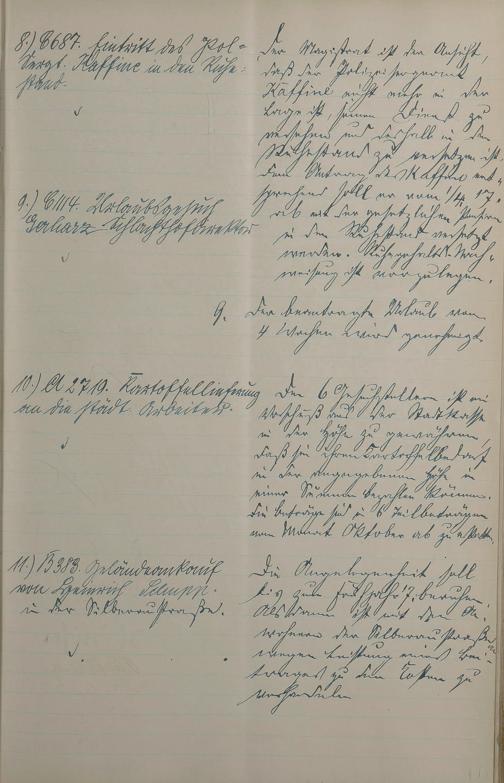 8.) C687. Eintritt des Pol=
Sergt. Kaffine in den Ruhe=
stand.
Der Magistrat ist der Ansicht,
daß der Polizeisergeant
Kaffine nicht mehr in der
Lage ist, seinen Dienst zu
versehen und deshalb in den
Ruhestand zu versetzen ist.
Dem Antrag des Kaffine ent=
sprechend soll er vom 1/4 17.
ab mit der gesetzlichen Pension
in den Ruhestand versetzt
werden. Ruhegehalts-Nach=
weisung ist vorzulegen.
9.) C1114. Urlaubsgesuch
Schlachthofdirektor
9. Der beantragte Urlaub von
4 Wochen wird genehmigt.
10.) A 2719. Kartoffellieferung
an die städt. Arbeiter.
Den 6 Gesuchstellern ist ein
Vorschuß aus der Stadtkasse
in der Höhe zu gewähren,
daß sie ihren Kartoffelbedarf
in der angegebenen Höhe in
einer Summe bezahlen können.
Die Beträge sind in 6 Teilbeträgen
vom Monat Oktober ab zu erstatten.
11.) B383. Geländeankauf
von Heinrich
in der Silberaustraße.
Die Angelegenheit soll
bis zum Frühjahr 17 beruhen.
Alsdann ist mit den An=
wohnern der Silberaustraße
wegen Leistung eines Bei=
trages zu den Kosten zu
verhandeln